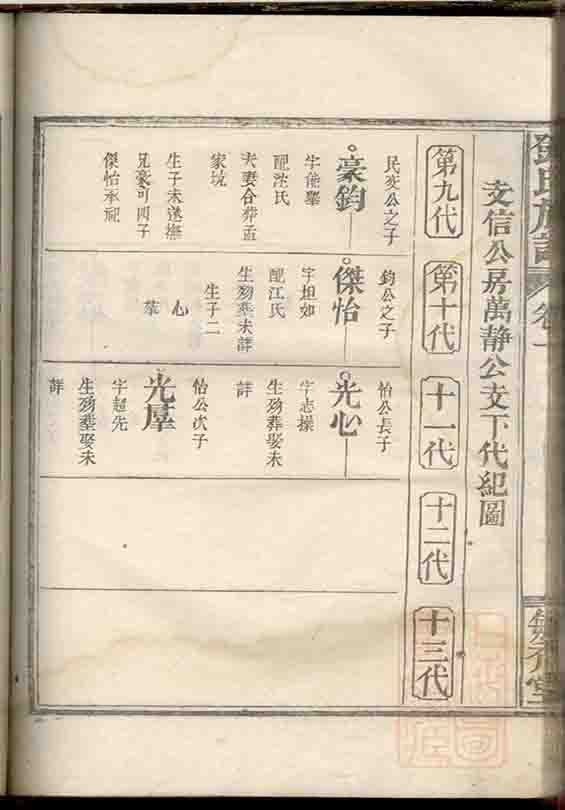 鄧氏族譜
卷一
支信公房萬靜公支下代紀圖
第九代
第十代
十一代
十二代
十三代
民亥公之子
豪鈞
配沈氏
夫妻合葬孟
家坑
生子未送撫
兄豪可四子
傑怡承祀
鈞公之子
傑怡
字坦如
配江氏
生歿葬未詳
生子二
心
怡公長子
光心
字志操
生歿葬娶未
詳
怡公次子
字超先
生歿葬娶未
詳